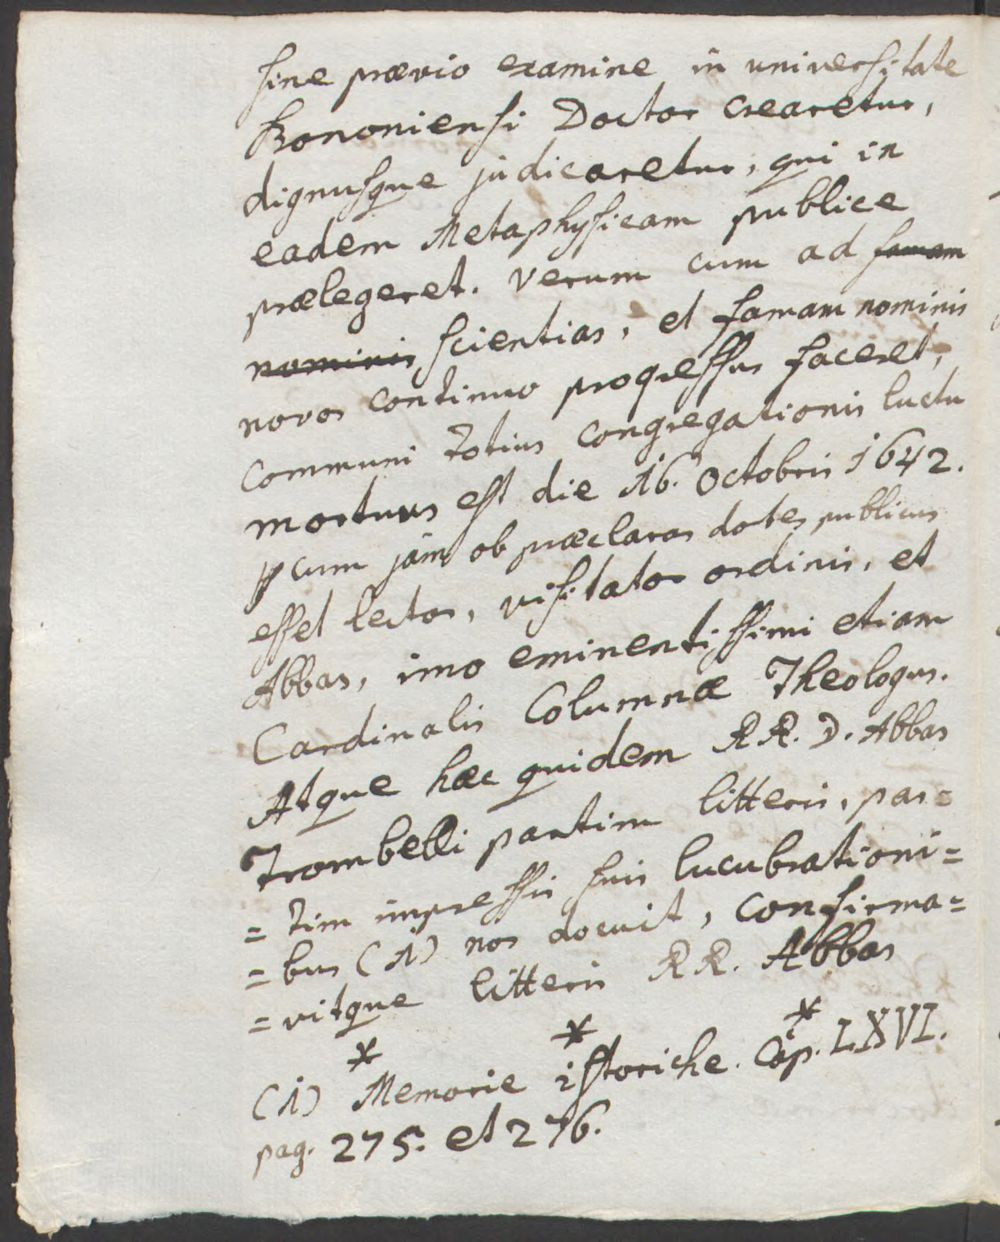 sine prævio examine in universitate
Bononiensi Doctor crearetur,
dignusque judicaretur, qui in
eadem Metaphysicam publice
prælegeret. Verum cum ad famam
nominis scientias, et famam nominis
novos continuo progressus faceret,
communi totius congregationis luctu
mortuus est die 16. Octobris 1642.
cum jam ob præclaras dotes publicus
esset lector, visitator ordinis, et
Abbas, imo eminentissimi etiam
Cardinalis Columnæ Theologus.
Atque hæc quidem RR. D. Abbas
Trombelli partim litteris, par=
=tim impressis suis lucubrationi=
=bus (1) nos docuit, confirma=
=vitque litteris RR. Abbas
* * *
(1) Memorie istoriche. Cap. LXVI.
pag. 275. et 276.